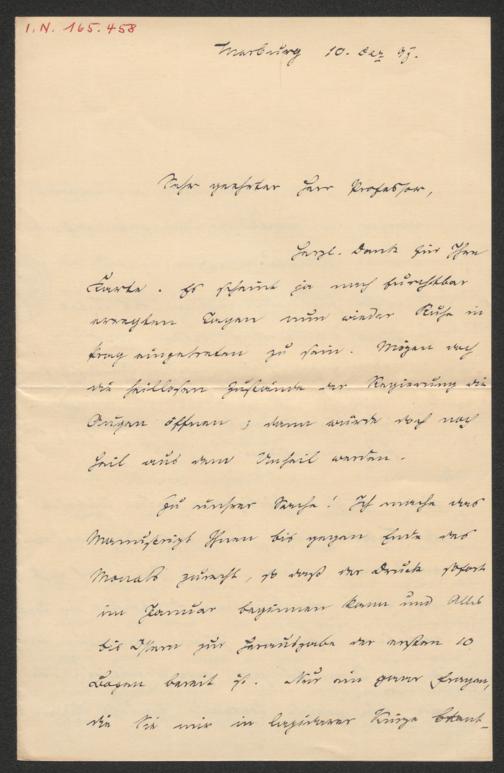 I.N. 165.458
Marburg 10. Dez 97.
Sehr geehrter Herr Professor,
Herzl. Dank für Ihre
Karte. Es scheint ja nach furchtbar
erregten Tagen nun wieder Ruhe in
Prag eingetreten zu sein. Mögen doch
die heillosen Zustände der Regierung die
Augen öffnen; dann würde doch noch
Heil aus dem Unheil werden.
Zu unsrer Sache! Ich mache das
Manuskript Ihnen bis gegen Ende des
Monats zurecht, so daß der Druck sofort
im Januar beginnen kann und Alles
bis Ostern zur Herausgabe der ersten 10
Bogen bereit ist. Nur ein paar Fragen,
die Sie mir in lapidarer Kürze beant-